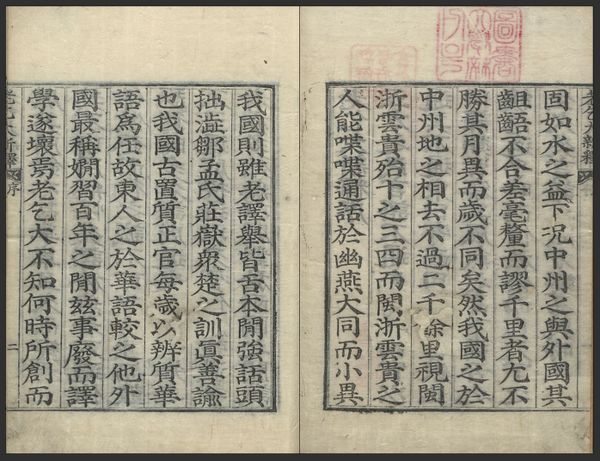 固如水之益下況中州之與外國其
齟齬不合差毫釐而謬千里者尤不
勝其月異而歲不同矣然我國之於
中州地之相去不過二千餘里視閩
浙雲貴殆十之三四而閩浙雲貴之
人能喋喋通話於幽燕大同而小異
我國則雖老譯舉皆舌本閒強話頭
拙澁鄒孟氏莊嶽衆楚之訓眞善諭
也我國古置質正官每歲以辨質華
語爲任故東人之於華語較之他外
國最稱嫺習百年之閒茲事廢而譯
學遂壞焉老乞大不知何時所創而
老乞大新釋 序 二
圖書